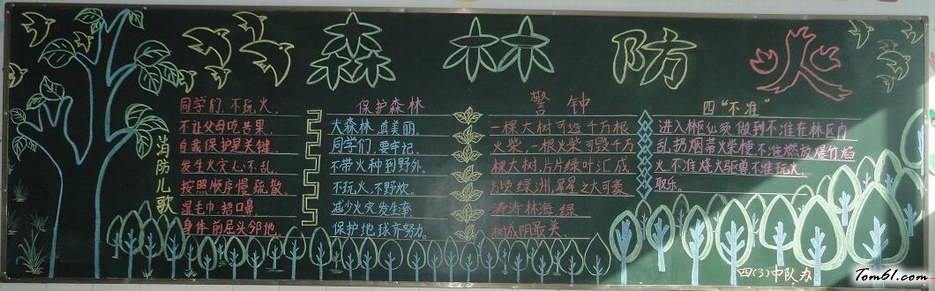 森林防火
消防儿歌
同学们,不玩火,
不让父母吃苦果.
自我保护是关键,
发生火灾心不乱.
按照顺序慢疏散.
湿毛巾捂口鼻.
身体前屈头邻地.
保护森林
大森林,真美丽,
同学们,要牢记,
不带火种到野外,
不玩火,不野炊,
减少火灾发生率
保护地球齐努力。
警钟
一棵大树可造千万根
火柴,一根火柴可毁千万
棵大树,片片绿叶汇成
涛涛林海,绿
树成阴最美
四“不准”
不准在林区内
乱扔烟蒂火柴梗,不准燃放爆竹焰
火,不准烧火驱兽,不准玩火
取乐。
四(3)中队办
Tom61.com